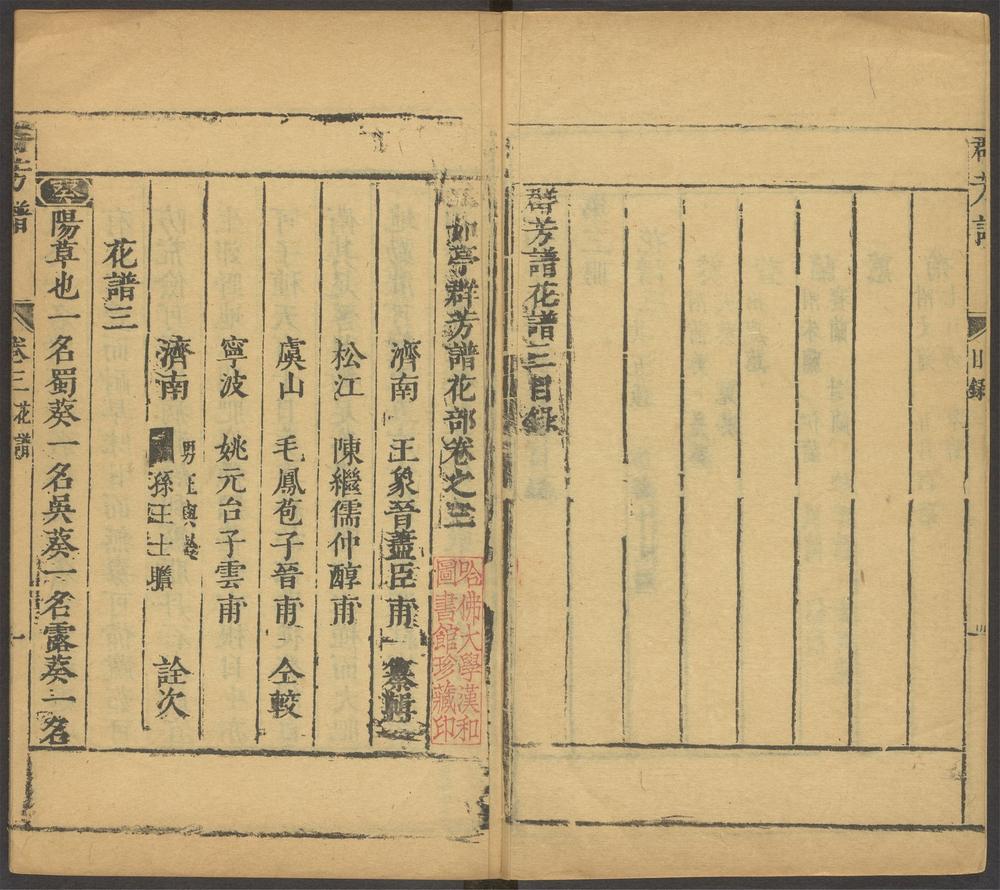 群芳譜
目錄
群芳譜花譜三目錄
二如亭群芳譜花部卷之三
濟南 王象晉藎臣甫 纂輯
松江 陳繼儒仲醇甫
虞山 毛鳳苞子晉甫 仝較
寧波 姚元台子雲甫
濟南 男王與齡 孫王士瞻 詮次
花譜三
葵 陽草也一名蜀葵一名吳葵一名露葵一名
群芳譜
卷三 花譜 一
哈佛大學漢和
圖書館珍藏印